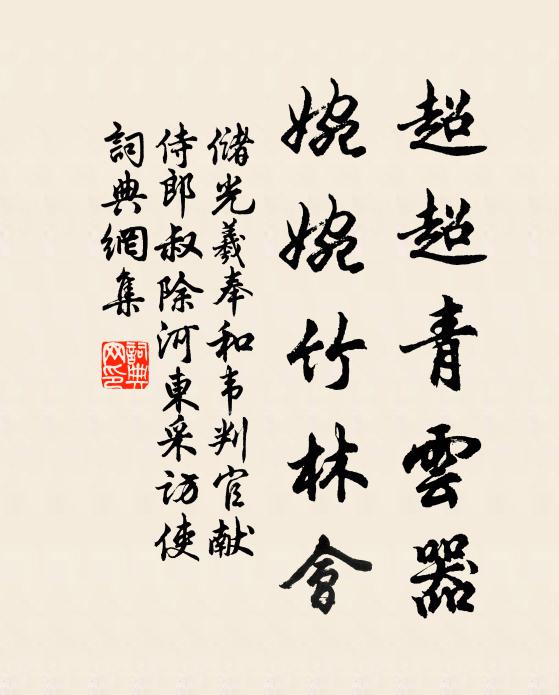 超超青雲器
婉婉竹林會
儲光羲奉和韦判官献
侍郎叔除河東采访使
詞典網集
詞典
网印